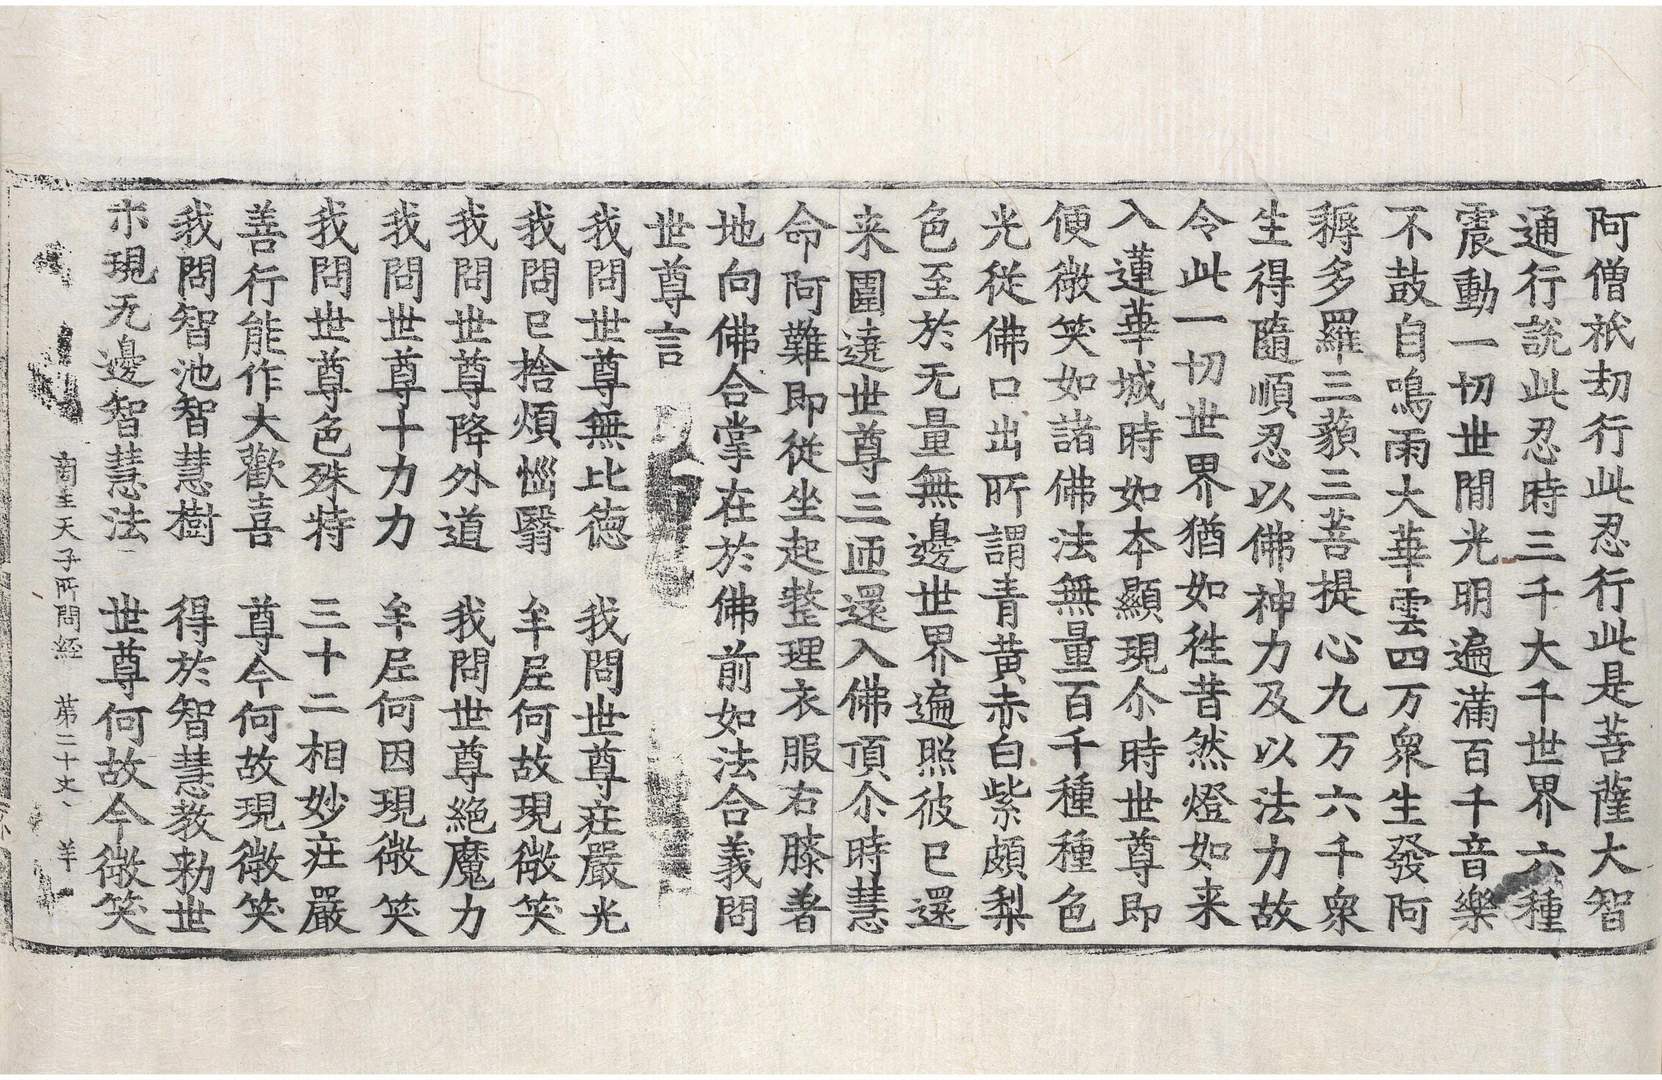 阿僧祇劫行此忍行此是菩薩大智
通行說此忍時三千大千世界六種
震動一切世間光明遍滿百千音樂
不鼓自鳴雨大華雲四万衆生發阿
耨多羅三藐三菩提心九万六千衆
生得隨順忍以佛神力及以法力故
令此一切世界猶如徃昔然燈如来
入蓮華城時如本顯現尒時世尊即
便微笑如諸佛法無量百千種種色
光從佛口出所謂青黃赤白紫頗梨
色至於无量無邊世界遍照彼已還
来圍遶世尊三匝還入佛頂尒時慧
命阿難即從坐起整理衣服右膝著
地向佛合掌在於佛前如法合義問
世尊言
我問世尊無比德　我問世尊莊嚴光
我問已捨煩惱翳　牟尼何故現微笑
我問世尊降外道　我問世尊絕魔力
我問世尊十力力　牟尼何因現微笑
我問世尊色殊特　三十二相妙莊嚴
善行能作大歡喜　尊今何故現微笑
我問智池智慧樹　得於智慧教勑世
示現无邊智慧法　世尊何故今微笑
商主天子所問經　第二十丈　羊